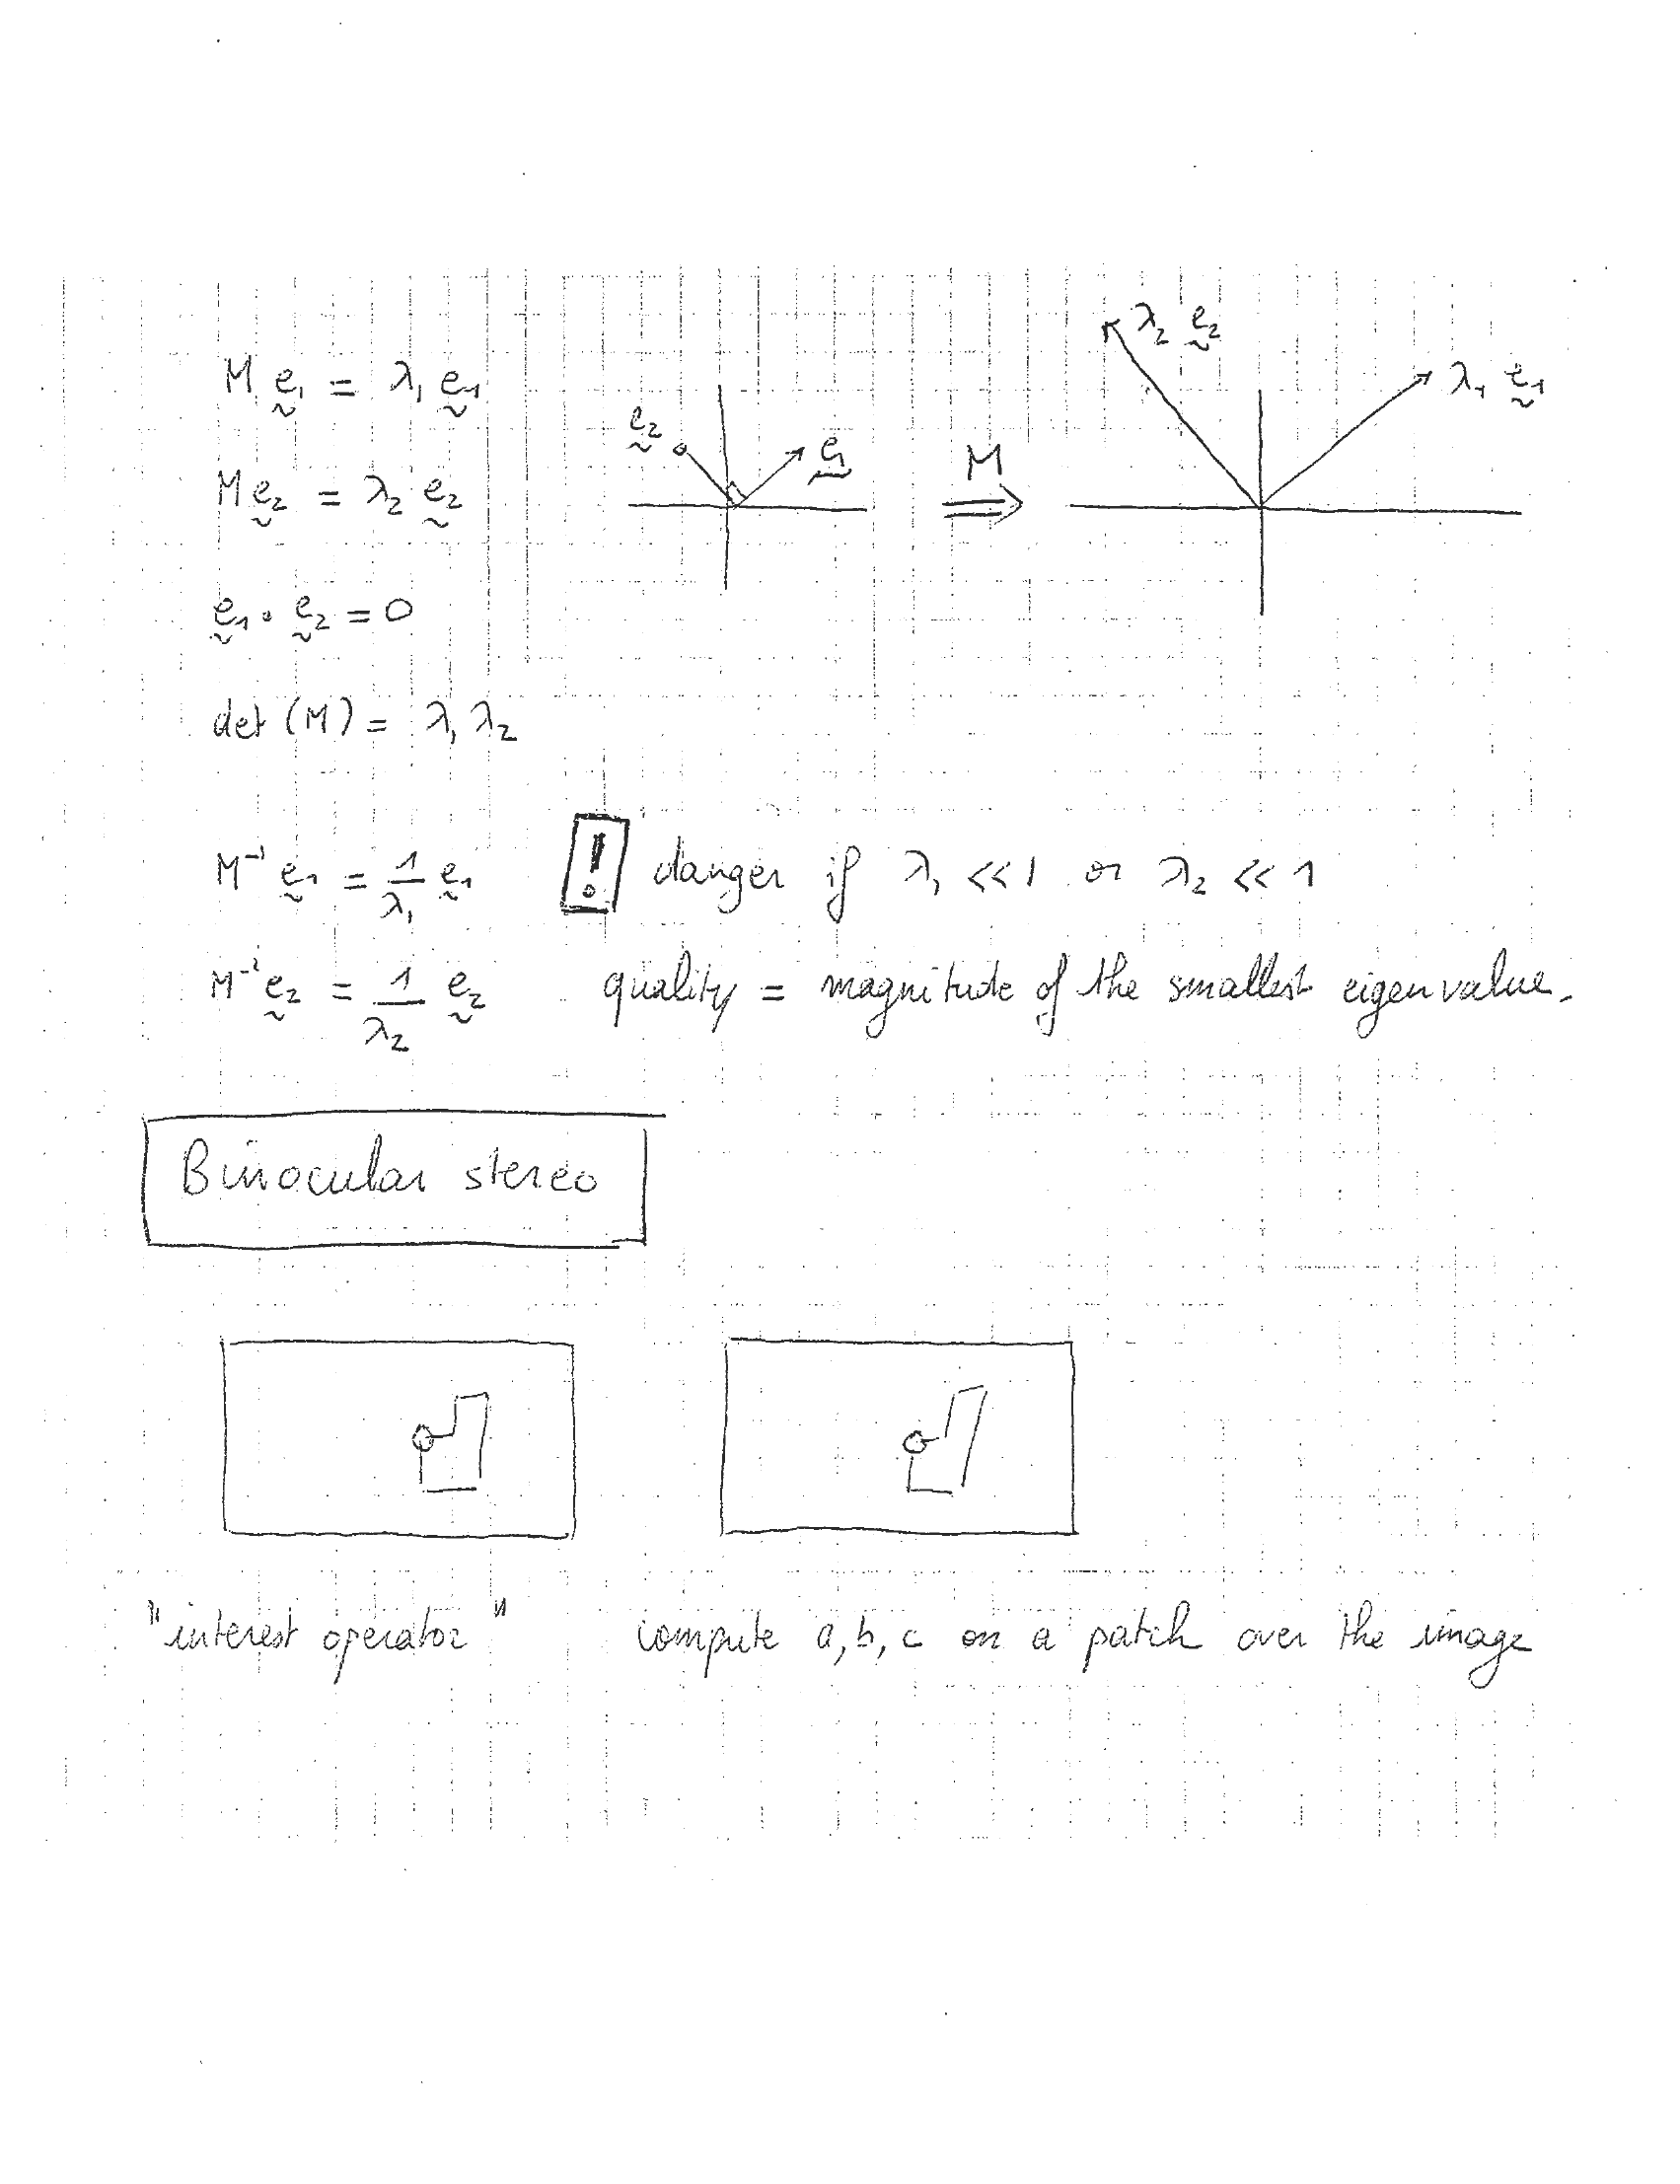 M e₁ = λ₁ e₁
λ₂ e₂
λ₁ e₁
e₂
e₁
M
M e₂ = λ₂ e₂
e₁ · e₂ = 0
det (M) = λ₁ λ₂
M⁻¹ e₁ = 1/λ₁ e₁ ! danger if λ₁ << 1 or λ₂ << 1
M⁻¹ e₂ = 1/λ₂ e₂ quality = magnitude of the smallest eigenvalue.
Binocular stereo
"interest operator" compute a, b, c on a patch over the image